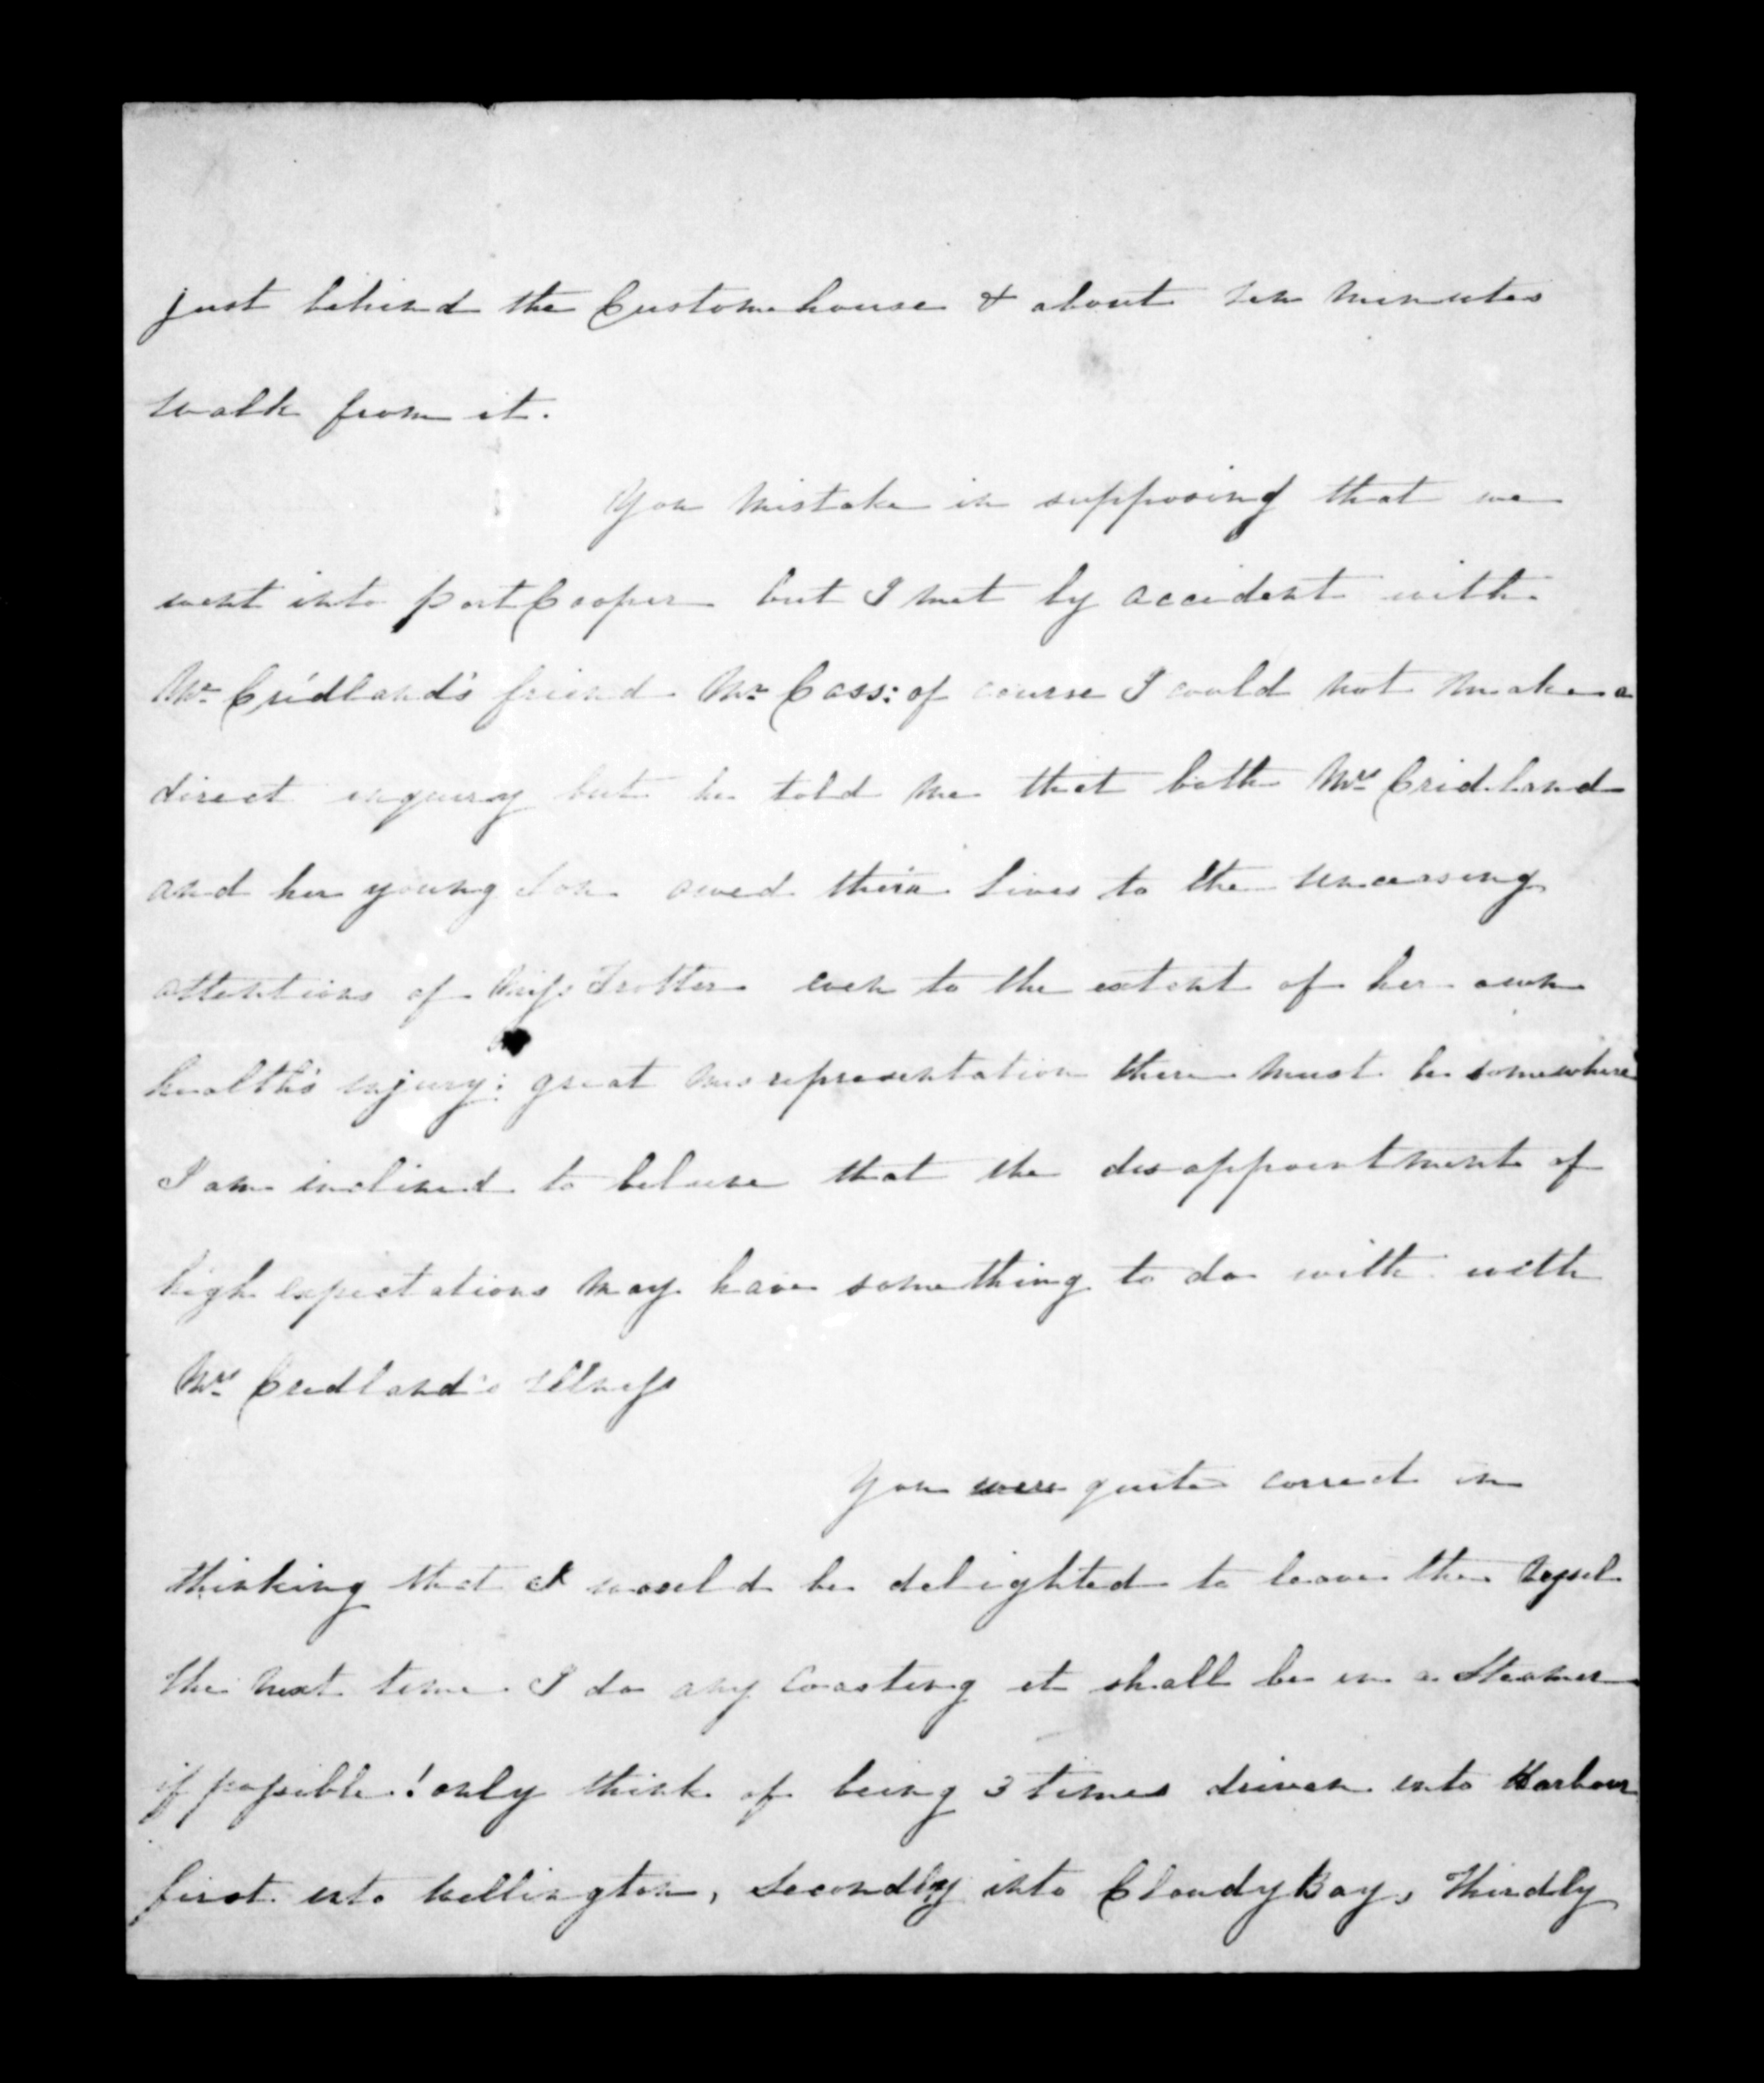 just behind the Customehouse & about ten minutes
walk from it.
You mistake in supposing that we
went into port Cooper but I met by accident with
Mr Cridland's friend Mr Cass: of course I could not make a
direct enquiry but he told me that both Mrs Cridland
and her young son owed their lives to the unceasing
attentions of Miss Trotter even to the extent of her own
health's injury: great misrepresentation there must be somewhere
I am inclined to believe that the disappointment of
high expectations may have something to do with with
Mrs Cridland's illness
You were quite correct in
thinking that I would be delighted to leave the Vessel
the next time I do any Coasting it shall be in a Steamer
if possible! only think of being 3 times driven into Harbour
first into Wellington, Secondly into Cloudy Bay, Thirdly